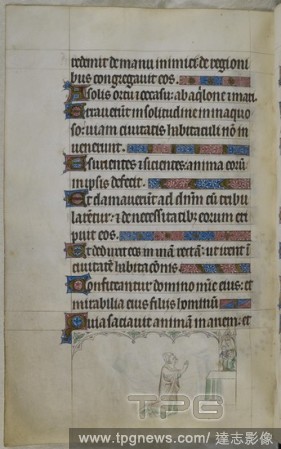 redemit de manu inimici: de regioni
bus congregavit eos.
A solis ortu & occasu: ab aq̃lone & mari.
Erraverunt in solitudine in inaquo
so: viam civitatis habitaculi nõ in
venerunt.
Esurientes & sicientes: anima eorũ
in ipsis defecit.
Et clamaverunt ad dñm cũ tribu
larentur: & de necessitatib; eorum eri
puit eos.
Et deduxit eos in viã rectã: ut irent ĩ
civitatẽ habitacõnis.
Confiteantur domino mĩe eius: et
mirabilia eius filiis hominũ
Quia saciavit animã inanem: et
TPG
www.tpgnews.com / 達志影像